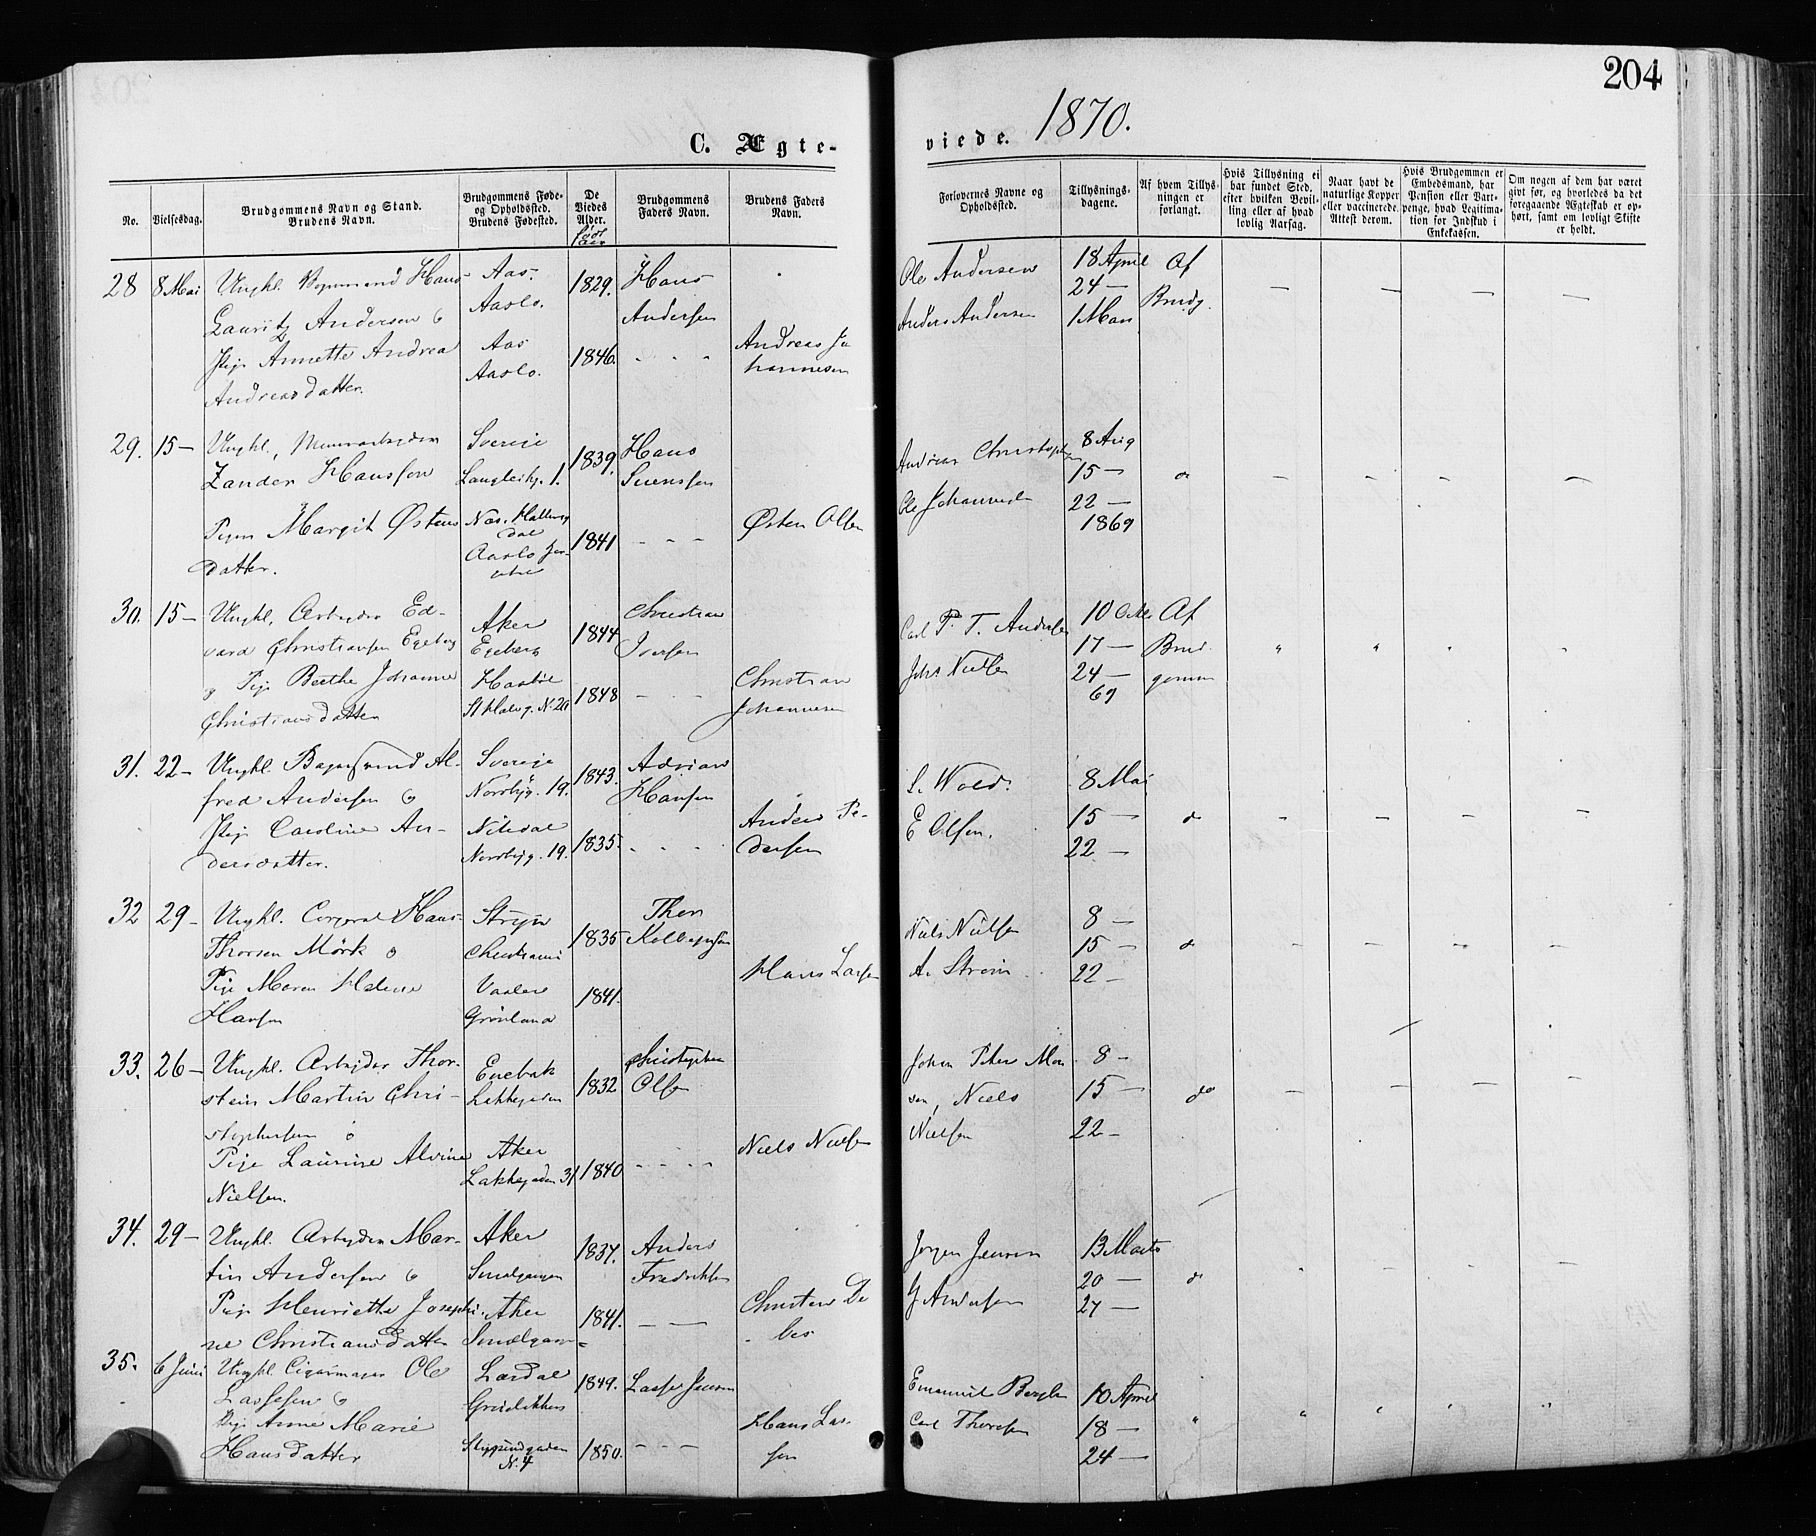 204
C. Ægte-
viede. 1870.
No.
Vielsesdag.
Brudgommens Navn og Stand.
Brudens Navn.
Brudgommens Føde-
og Opholdssted.
Brudens Fødested.
De
Viedes
Alder.
født
Aar
Brudgommens
Faders Navn.
Brudens Faders
Navn.
Forlovernes Navne og
Opholdssted.
Tillysnings-
dagene.
Af hvem Tillys-
ningen er
forlangt.
Hvis Tillysning ei
har fundet Sted,
efter hvilken Bevil-
ling eller af hvad
lovlig Aarsag.
Naar havt de
naturlige Kopper
eller vaccinerede.
Attest derom.
Hvis Brudgommen er
Embedsmand, har
Pension eller Vart-
penge, hvad Legitima-
tion for Indskud i
Enkekassen.
Om nogen af dem har været
gift før, og hvorledes da det
foregaaende Ægteskab er op-
hørt, samt om lovligt Skifte
er holdt.
28 8 Mai Ungkl. Hans Aas 1829. Hans Ole Andersen 18 April Af
Lauritz Andersen o Aaslo. Andersen Anders Andersen 24 — Brudg.
Pige Annette Andrea Aas 1846. - - - Andreas Jo 1 Mai
Andreasdatter. Aaslo. hannesen
29. 15 — Ungkl., Sverige 1839. Hans Andreas 8 Aug
Zander Hansson 1. Svensson Ole 15 — do
Pigen Margit Østens Nes. Halling 1841 - - - Østen Olsen 22 —
datter. dal 1869
Aaslo
30. 15 — Ungkl. Arbeider Ed- Aker 1844 Christian Carl P. T. Andersen 10 Octbr Af
vard Christiansen Egeberg Egeberg Iversen Johs Nielsen 17 — Brud
o Pige Berthe Johanne 1848 - - Christian 24 — gommen
Christiansdatter St Halvg. N. 20 Johannesen 69
31. 22 — Ungkl. Bagersvend Al- Sverige 1843. Adrian L. Wold. 8 Mai
fred Andersen o Norbyg. 19. Hansen E Olsen. 15 — do
Pige Caroline An- Nitedal 1835. - - - Anders Pe- 22 —
dersdatter. Norbyg. 19. dersen
32 29 — Ungkl. Corporal Hans Stryn 1835 Thor Niels Nielsen 8 —
Thorsen Mörk o Christiania A. Strøm 15 — do
Pige Maren Helene Vaaler 1841. Hans Larsen 22 —
Hansen Grønland
33. 26 — Ungkl. Arbeider Thor- Enebak 1832 Christopher Johan Peter Mon 8 —
stein Martin Chri- Lakkegaden Olsen sen, Niels 15 — do
stophersen o Nielsen 22 —
Pige Laurine Alvine Aker 1840 - - - - Niels Nielsen
Nielsen. Lakkegaden 31
34. 29 — Ungkl. Arbeider Mar- Aker 1837. Anders Jørgen Jensen 13 Marts
tin Andersen o Smalgangen Fredriksen G Andersen 20 — do
Pige Henriette Josephi- Aker 1841. — — Christen De 27 —
ne Christiansdatter Smalgan= bes
35. 6 Juni Ungkl. Cigarmager Ole Lærdal 1849. Lasse Jensen Emanuel Bergh 10 April
Lassesen o Carl Thoresen 18 — "
Pige Anne Marie 1850. - - - Hans Lar- 24 —
Hansdatter N. 4 sen